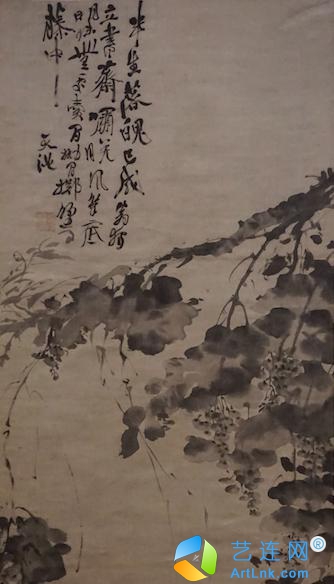 半生落魄已成翁獨
立書齋嘯晚風筆底
明珠無處賣閒拋閒擲野
藤中
天池
艺连网®
ArtLnk.com